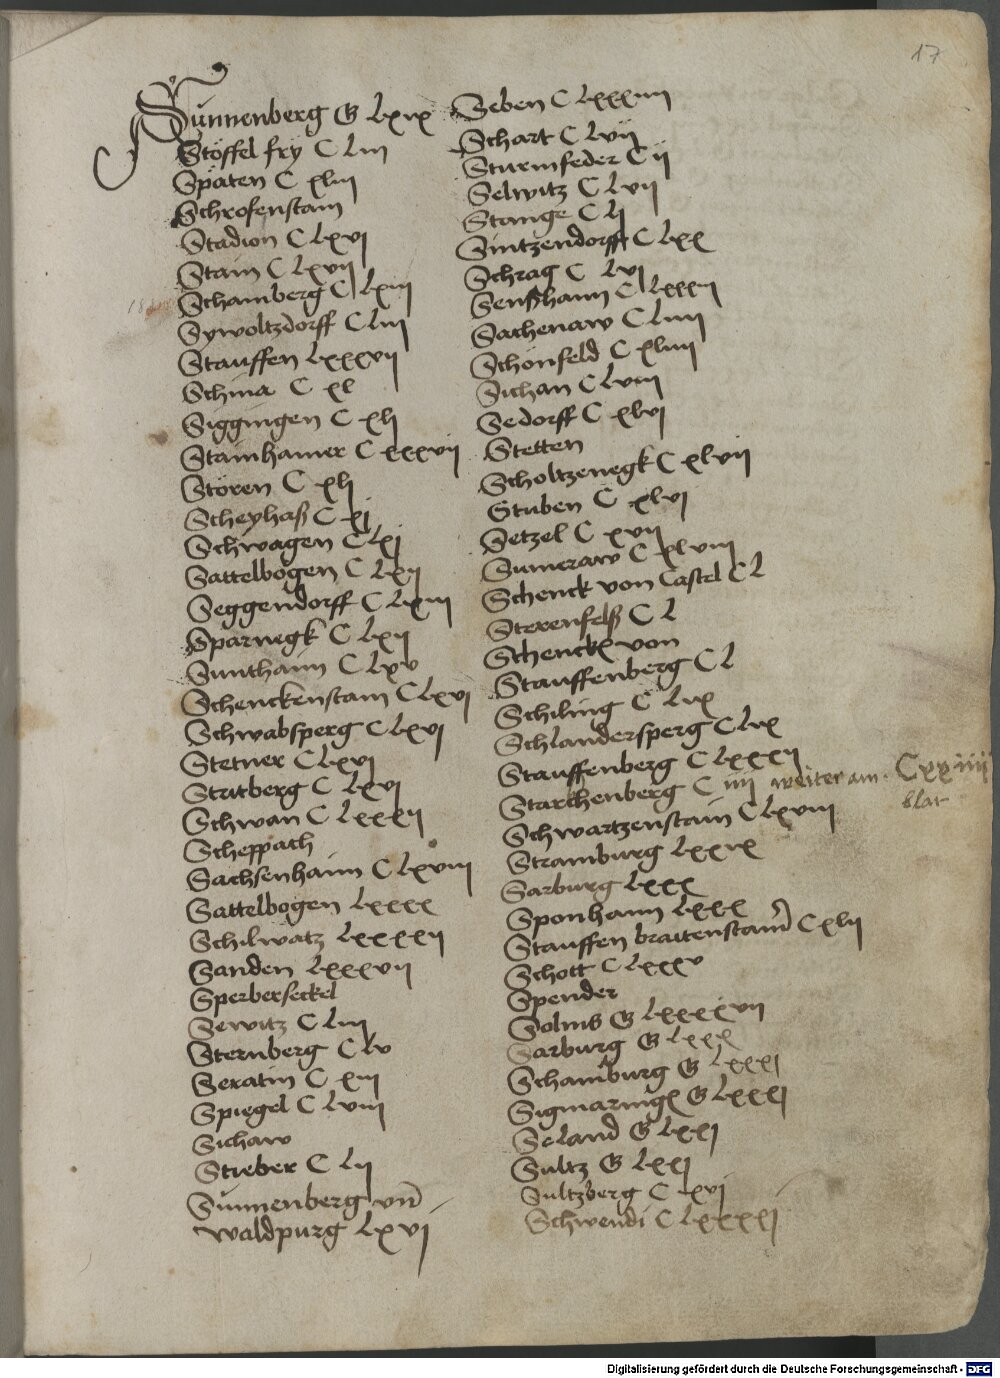 17
Sunnenberg G Lxix
Stöffel fry C Liii
Späten C xliii
Schrofenstain
Stadion C Lxvi
Stain C Lxvii
Schamberg C Lxiii
Sywoltzdorff C Liii
Stauffen Lxxxvii
Schina C xl
Siggingen C xli
Stainhamer C xxxvii
Stören C xli
Scheyhaß C xi
Schwagen C Lxi
Sattelbogen C Lxii
Seggendorff C Lxiii
Sparnegk C Lxii
Sunthaim C Lxv
Schenckenstain C Lxvi
Schwabsperg C Lxvi
Stetner C Lxvi
Stritberg C Lxvi
Schwan C Lxxxii
Scheppach
Sachsenhaim C Lxviii
Sattelbogen Lxxxx
Schilwatz Lxxxxii
Sanden Lxxxvii
Sperberseckel
Sewitz C Liii
Sternberg C Lv
Seratin C xiii
Spiegel C Lviii
Sichaw
Stieber C Lii
Sunnenberg vn̄
waldpurg Lxvi
Seben C Lxxxiiii
Schart C Lvii
Sturmfeder C ii
Selwitz C Lvii
Stange C Li
Sintzendorff C Lxx
Schrag C Lvi
Senßhaim C Lxxxii
Sachenaw C Liiii
Schönfeld C xliiii
Sichan C Lviii
Sedorff C xlvi
Stetten
Scholtzenegk C xlvii
Stuben C xlvi
Setzel C xvii
Sumeraw C xlviii
Schenck von Castel C L
Sterenfelß C L
Schencken von
Stauffenberg C L
Schiling C Lix
Schlandersperg C Lix
Stauffenberg C Lxxxii
Starchenberg C iiii weiter am Cxxiiii
blat
Schwartzenstain C Lxviii
Stramburg Lxxix
Sarburg Lxxx
Sponhaim Lxxx
Stauffen braitenstain C xlii
Schott C Lxxxv
Spender
Solms G Lxxxxvii
Sarburg G Lxxx
Schamburg G Lxxxi
Sigmaringen G Lxxxi
Seland G Lxxi
Sultz G Lxxi
Sultzberg C xvi
Schwendi C Lxxxxi
Digitalisierung gefördert durch die Deutsche Forschungsgemeinschaft - DFG